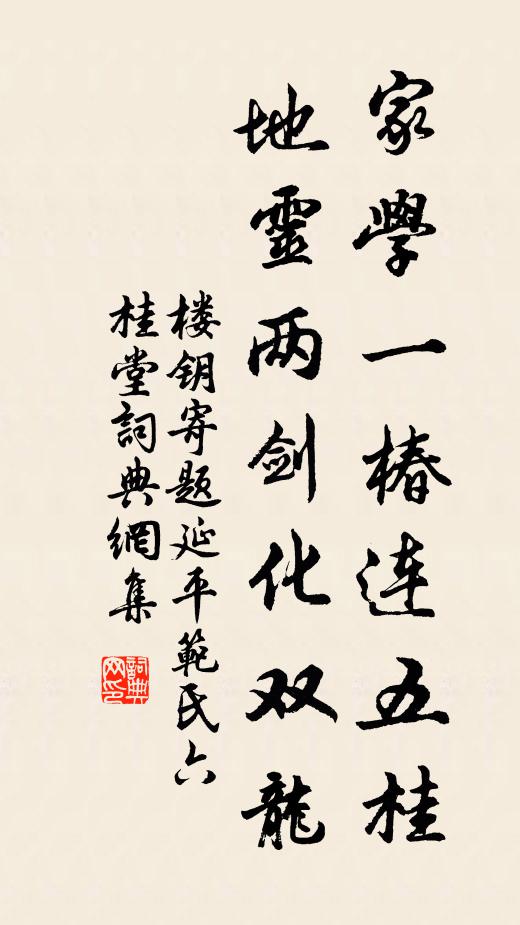 家學一椿连五桂
地靈两剑化双龍
楼钥寄题延平範民六
桂堂詞典網集
詞典网印